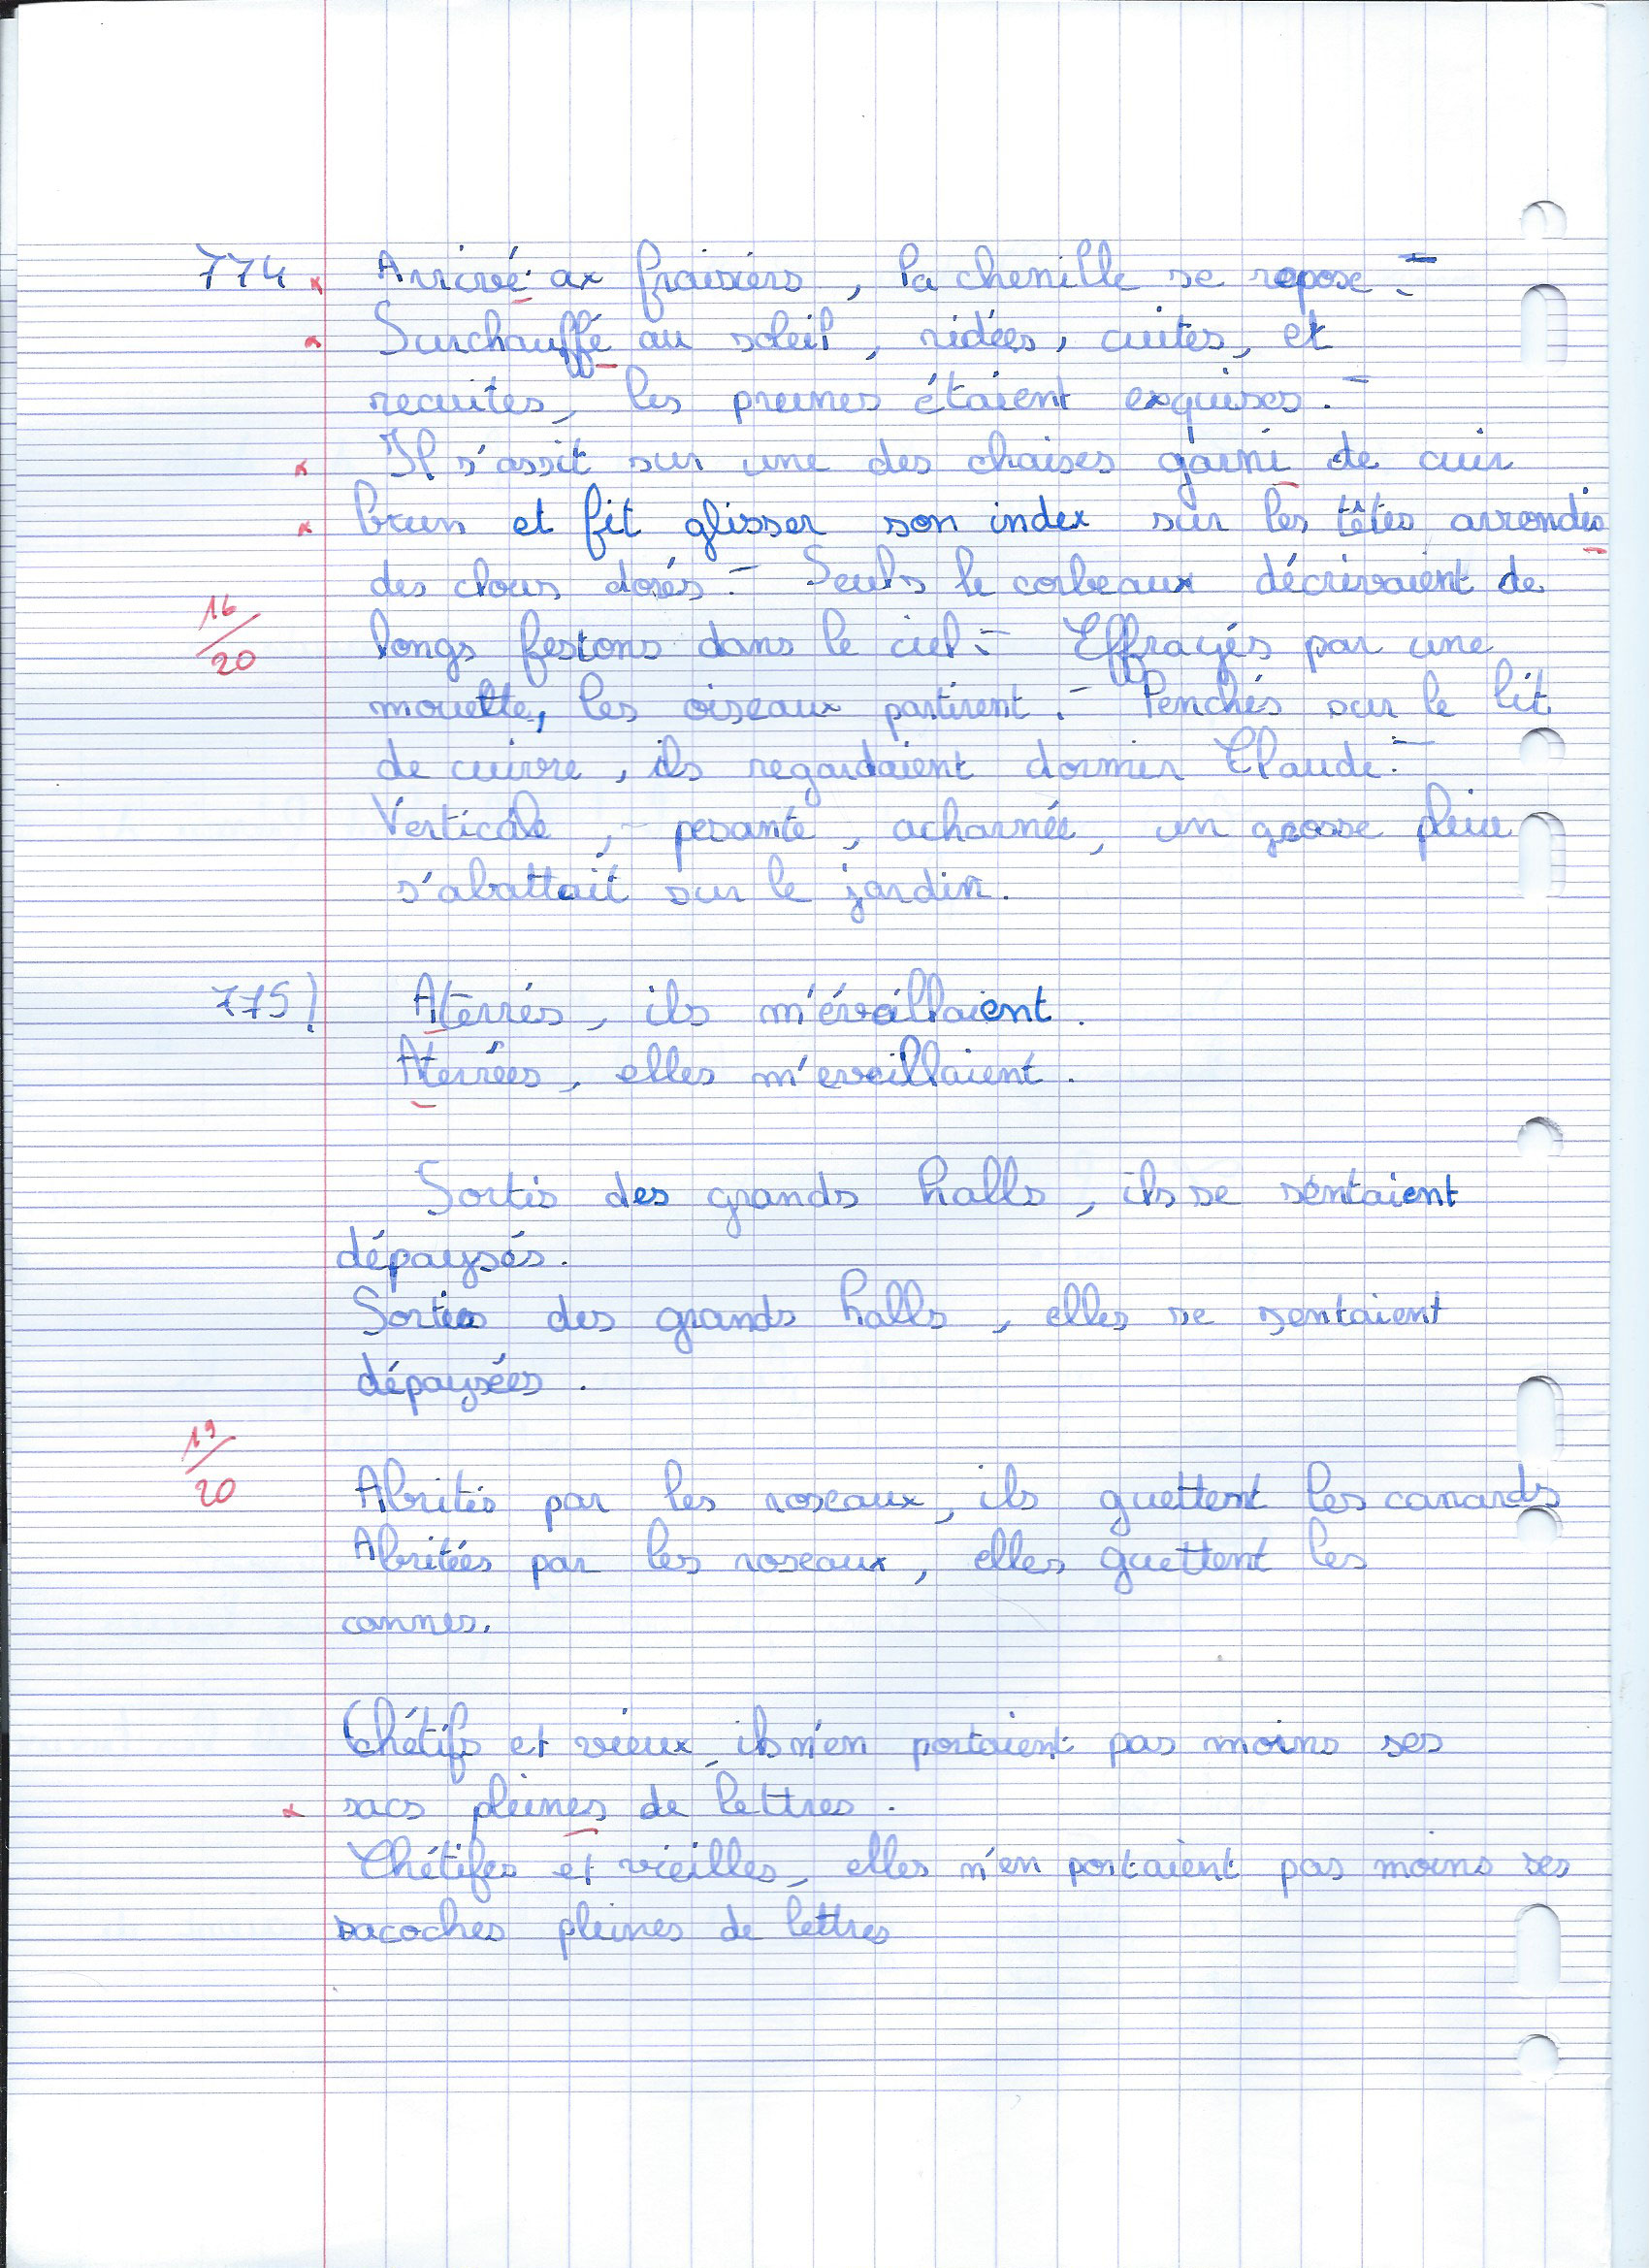 774 Arrivé ax fraisiers, la chenille se repose. -
Surchauffé au soleil, ridées, cuites, et
recuites, les prunes étaient exquises. -
Il s'assit sur une des chaises garni de cuir
brun et fit glisser son index sur les têtes arrondis
des clous dorés. - Seuls le corbeaux décrivaient de
16/20 longs festons dans le ciel. - Effrayés par une
mouette, les oiseaux partirent. - Penchés sur le lit
de cuivre, ils regardaient dormir Claude. -
Verticale, - pesante, acharnée, un grosse pluie
s'abattait sur le jardin.
775) Aterrés, ils m'éveillaient.
Aterrées, elles m'eveillaient.
Sortis des grands halls, ils se sentaient
dépaysés.
Sorties des grands halls, elles se sentaient
dépaysées.
19/20
Abrités par les roseaux, ils guettent les canards
Abritées par les roseaux, elles guettent les
cannes.
Chétifs et vieux, ils n'en portaient pas moins ses
sacs pleines de lettres.
Chétifes et vieilles, elles n'en portaient pas moins ses
sacoches pleines de lettres